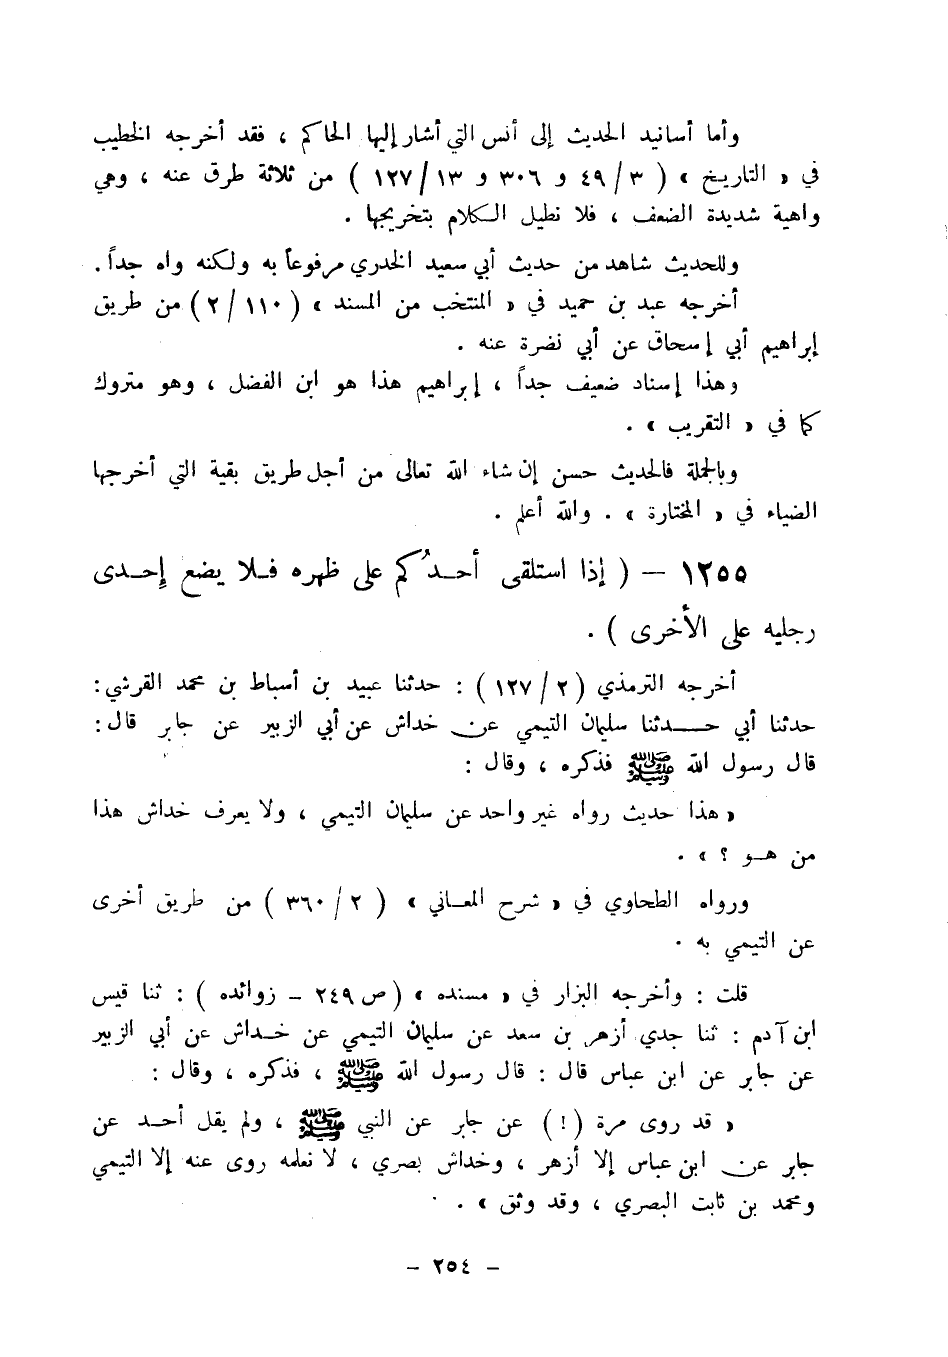 وأما أسانيد الحديث إلى أنس التي أشار إليها الحاكم ، فقد أخرجه الخطيب
في « التاريخ » ( ٣ / ٤٩ و ٣٠٦ و ١٣ / ١٢٧ ) من ثلاثة طرق عنه ، وهي
واهية شديدة الضعف ، فلا نطيل الكلام بتخريجها .
وللحديث شاهد من حديث أبي سعيد الخدري مرفوعاً به ولكنه واه جداً .
أخرجه عبد بن حميد في « المنتخب من المسند » ( ١١٠ / ٢ ) من طريق
إبراهيم أبي إسحاق عن أبي نضرة عنه .
وهذا إسناد ضعيف جداً ، إبراهيم هذا هو ابن الفضل ، وهو متروك
كما في « التقريب » .
وبالجملة فالحديث حسن إن شاء الله تعالى من أجل طريق بقية التي أخرجها
الضياء في « المختارة » . والله أعلم .
١٢٥٥ – ( إذا استلقى أحدُكم على ظهره فلا يضع إحدى
رجليه على الأخرى ) .
أخرجه الترمذي ( ٢ / ١٢٧ ) : حدثنا عبيد بن أسباط بن محمد القرشي :
حدثنا أبي حدثنا سليمان التيمي عن خداش عن أبي الزبير عن جابر قال :
قال رسول الله ﷺ فذكره ، وقال :
« هذا حديث رواه غير واحد عن سليمان التيمي ، ولا يعرف خداش هذا
من هو ؟ » .
ورواه الطحاوي في « شرح المعاني » ( ٢ / ٣٦٠ ) من طريق أخرى
عن التيمي به .
قلت : وأخرجه البزار في « مسنده » ( ص ٢٤٩ – زوائده ) : ثنا قيس
ابن آدم : ثنا جدي أزهر بن سعد عن سليمان التيمي عن خداش عن أبي الزبير
عن جابر عن ابن عباس قال : قال رسول الله ﷺ ، فذكره ، وقال :
« قد روى مرة ( ! ) عن جابر عن النبي ﷺ ، ولم يقل أحد عن
جابر عن ابن عباس إلا أزهر ، وخداش بصري ، لا نعلمه روى عنه إلا التيمي
ومحمد بن ثابت البصري ، وقد وثق » .
– ٢٥٤ –